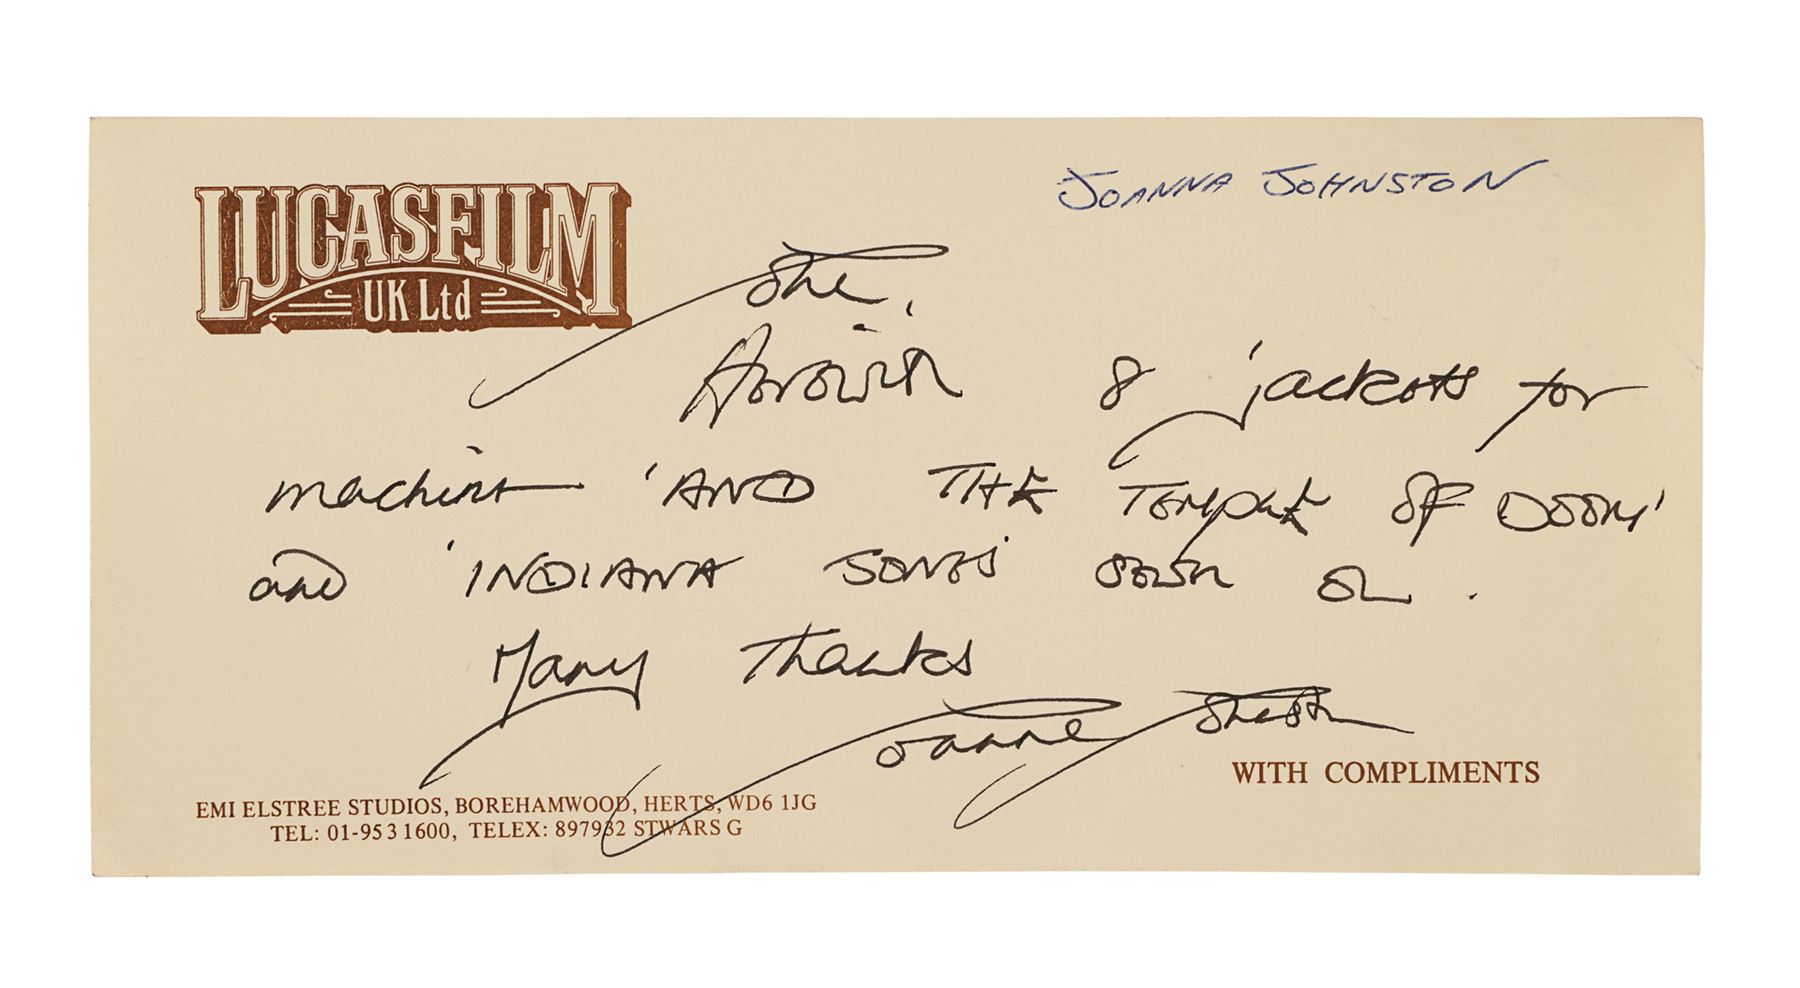 LUCASFILM
UK Ltd
JOANNA JOHNSTON
8 jackets for
machine 'AND THE TEMPLE OF DOOM'
and 'INDIANA JONES' sewn on.
Many Thanks
Joanne Johnston
WITH COMPLIMENTS
EMI ELSTREE STUDIOS, BOREHAMWOOD, HERTS, WD6 1JG
TEL: 01-953 1600, TELEX: 897932 STWARS G